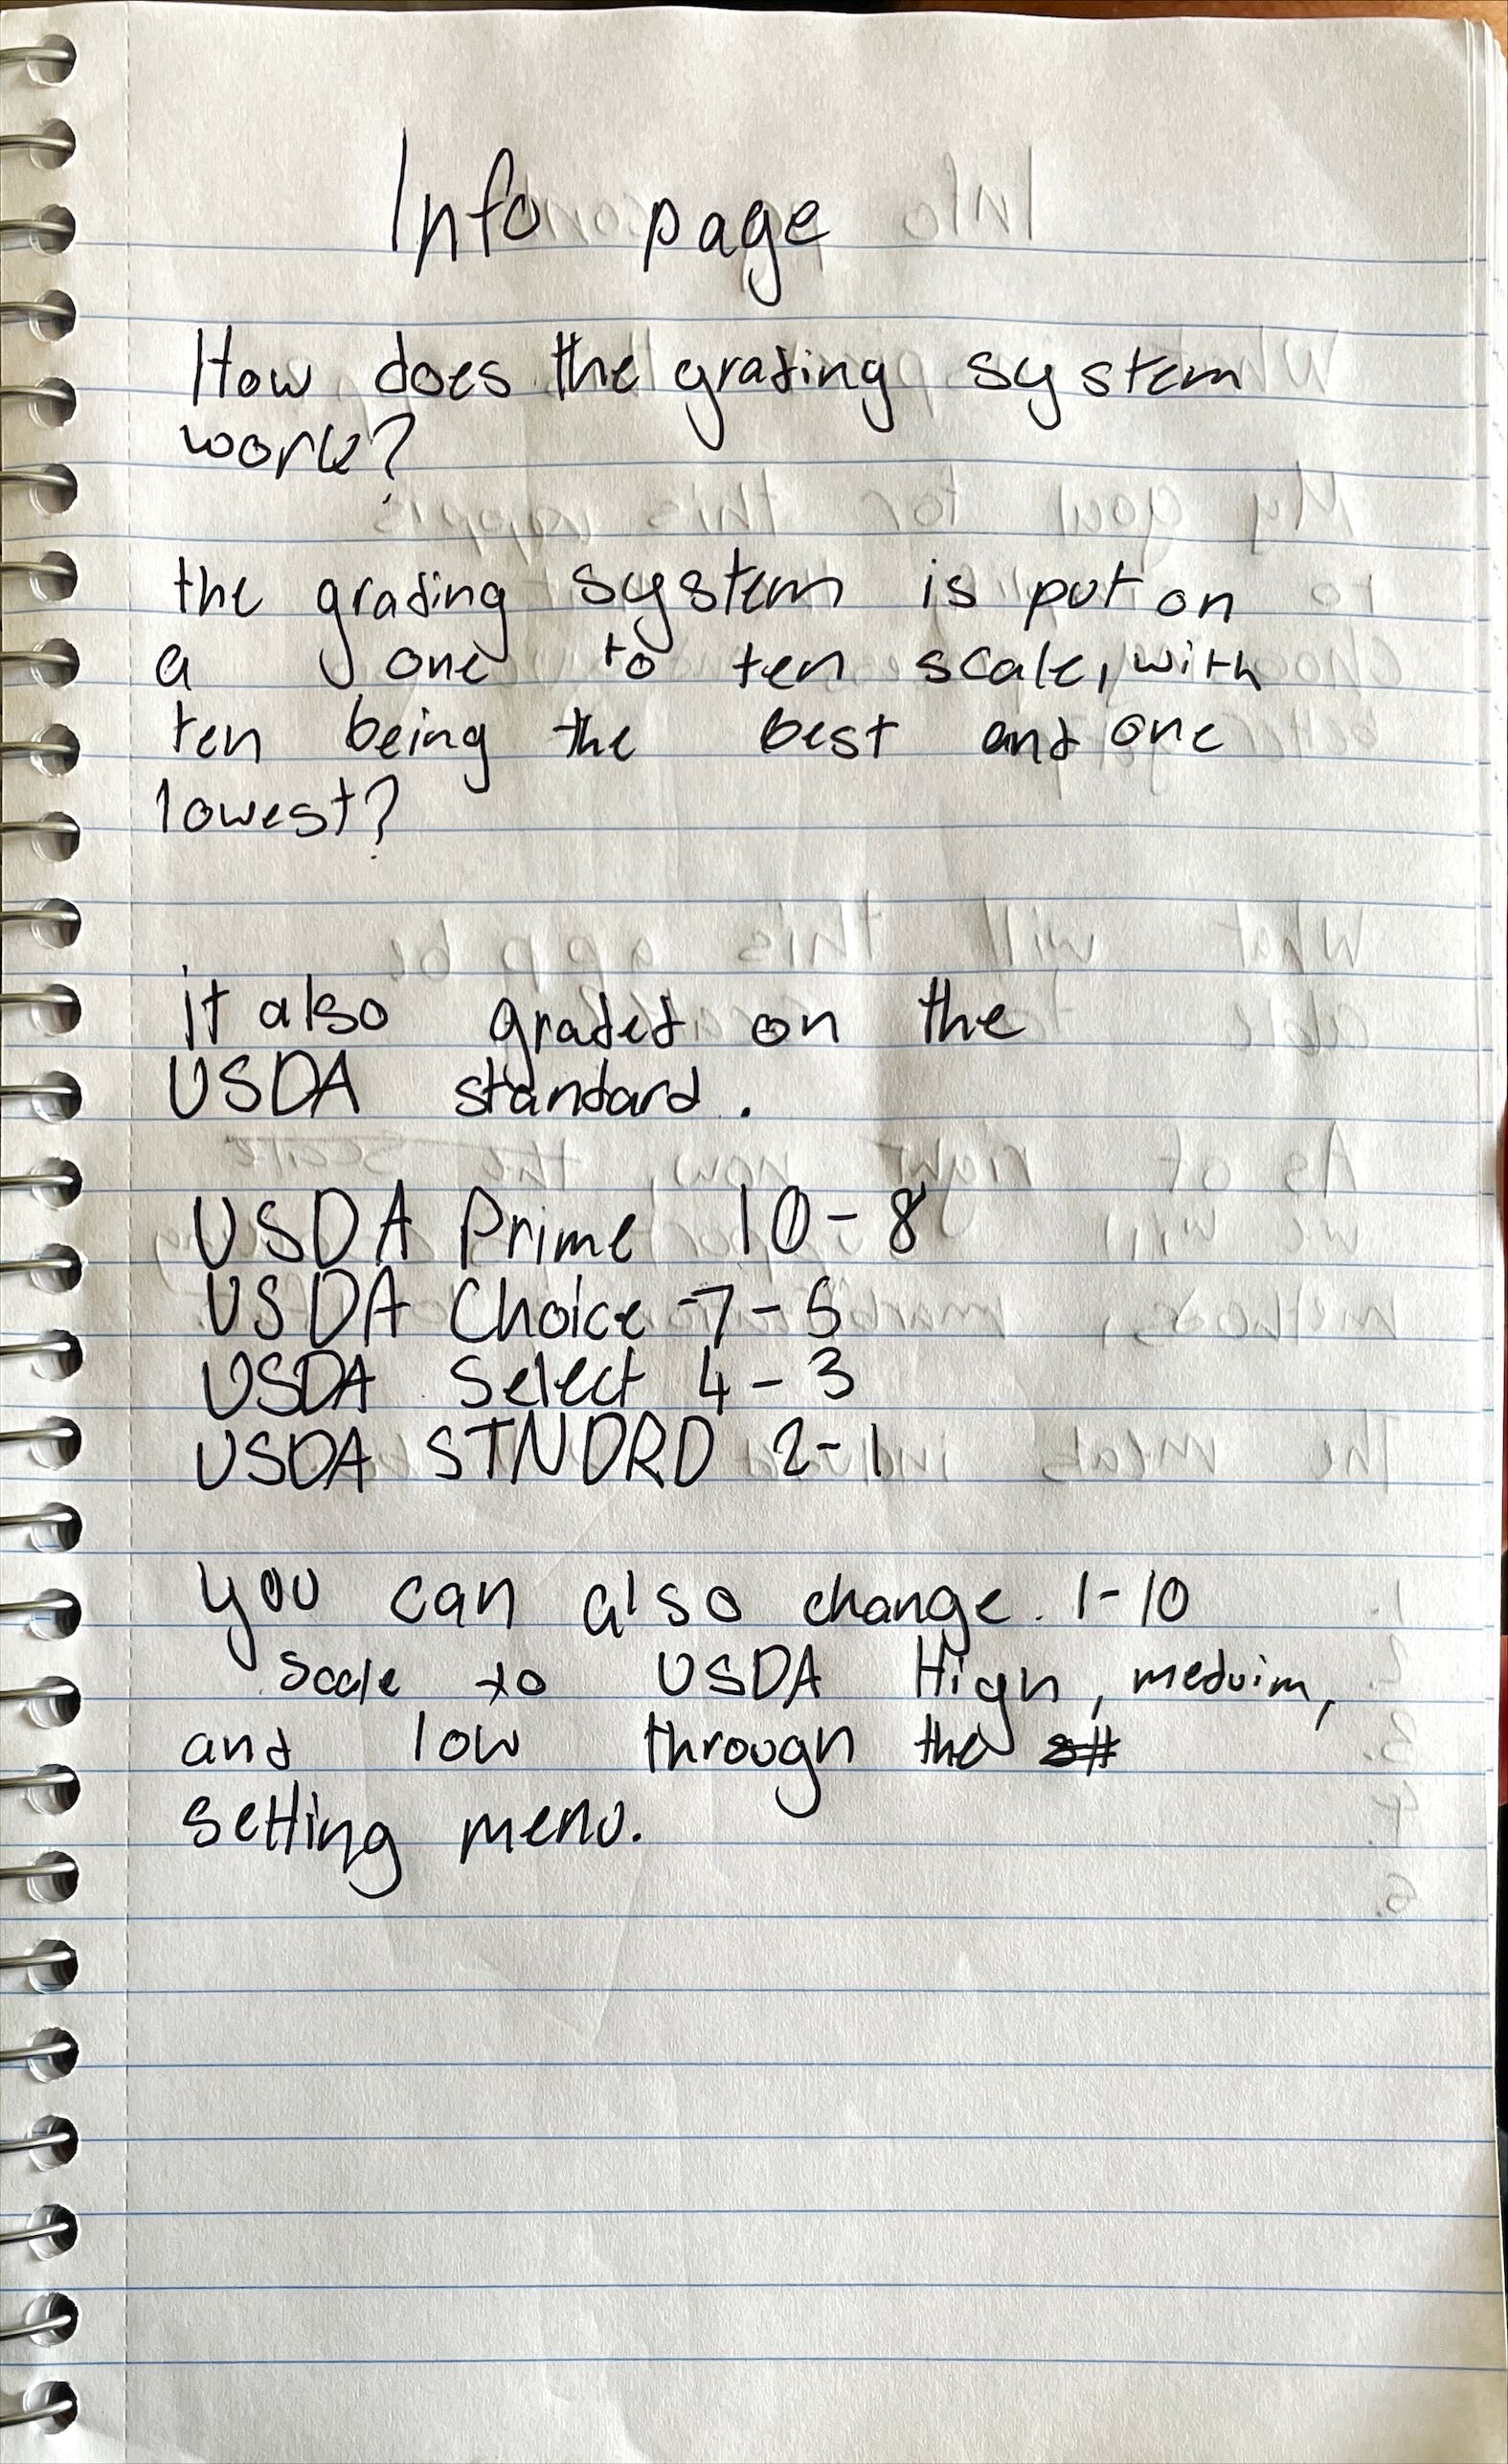 Info page
How does the grading system
work?
the grading system is put on
a one to ten scale, with
ten being the best and one
lowest?
it also graded on the
USDA standard.
USDA Prime 10-8
USDA Choice 7-5
USDA Select 4-3
USDA STNDRD 2-1
you can also change 1-10
scale to USDA High, meduim,
and low through the
setting menu.